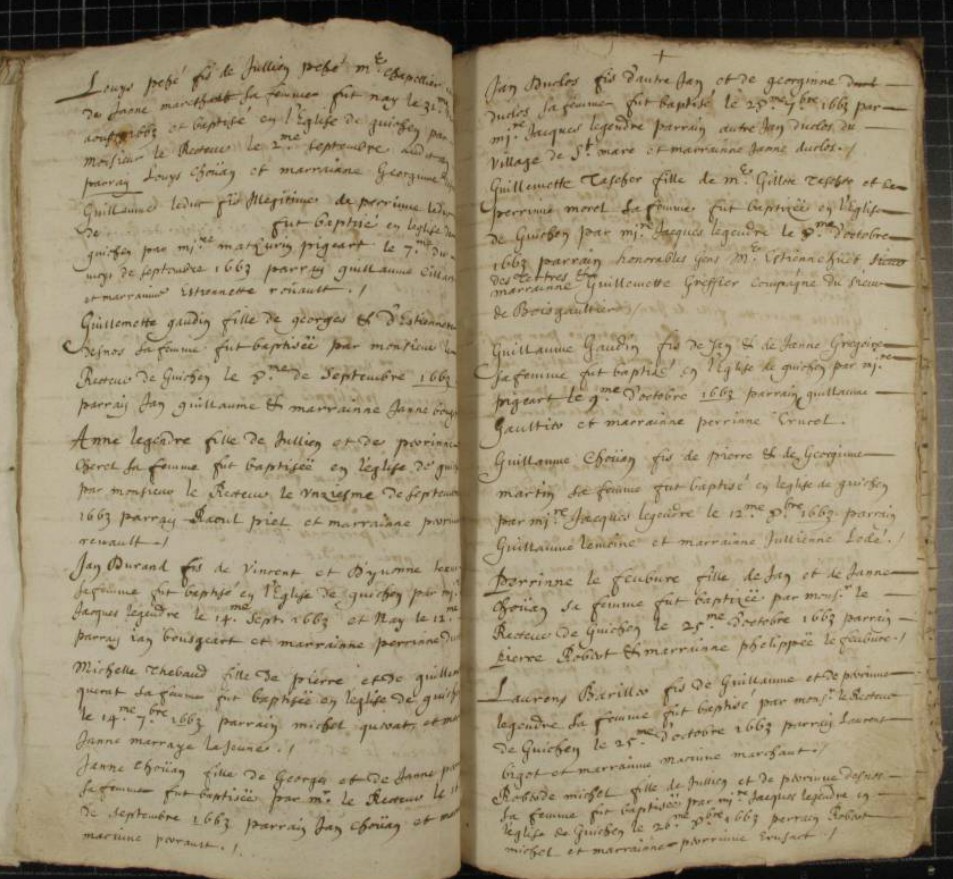 Louys pehé fis de Jullien pehé m.e Chapellier
de Janne marchant sa femme fut nay le 31.me
aoust 1663 et baptisé en l'Eglise de guichen par
monsieur le Recteur le 2.me septembre audit an
parrain Louys Choüan et marrainne Georginne
Guillaume leduc fis Illegitime de perrinne leduc
de fut baptisé en l'eglise de
guichen par mi.re mathurin prigeart le 7.me du
moys de septembre 1663 parrain guillaume
et marrainne Estiennette roüault ./
Guillemette gaudin fille de georges & d'Estiennette
desnos sa femme fut baptiseë par monsieur le
Recteur de Guichen le 8.me de Septembre 1663
parrain Jan guillaume & marrainne Janne
Anne legendre fille de Jullien et de perrinne
Cherel sa femme fut baptiseë en l'eglise de gui
par monsieur le Recteur le unziesme de septembre
1663 parrain Raoul piel et marrainne perrinne
renault ./
Jan Durand fis de Vincent et d'yvonne
sa femme fut baptisé en l'Eglise de guichen par mi.re
Jacques legendre le 14.me Sept. 1663 et Nay le 12.me
parrain ian bousgeart et marrainne perrinne
Michelle Thebaud fille de pierre et de guillem
querat sa femme fut baptiseë en l'eglise de guich
le 14.me 7.bre 1663 parrain michel querat et mar
Janne marraye la jeune ./
Janne Choüan fille de Georges et de Janne
sa femme fut baptisée par m.r le Recteur le
de Septembre 1663 parrain Jan Choüan et mar
perrault ./
+
Jan Duclos fis d'autre Jan et de georginne
duclos sa femme fut baptisé le 28.me 7.bre 1663 par
mi.re Jacques legendre parrain autre Jan duclos du
village de S.t marc et marrainne Janne duclos ./
Guillemette Tescher fille de m.e Gilles Tescher et de
perrinne morel sa femme fut baptizeë en l'eglise
de Guichen par mi.re Jacques legendre le 8.me d'octobre
1663 parrain honorables gens M.e Estienne huet sieur
des tertres &
marrainne Guillemette Greffier compagne du sieur
de Boisgaultier ./
Guillaume Gaudin fis de Jan & de Janne Gregoire
sa femme fut baptisé en l'Eglise de guichen par mi.re
prigeart le 9.me d'octobre 1663 parrain guillaume
Gaultier et marrainne perrinne
Guillaume Choüan fis de pierre & de Georginne
martin sa femme fut baptisé en l'eglise de guichen
par mi.re Jacques legendre le 12.me 8.bre 1663 parrain
Guillaume lemoine et marrainne Jullienne Lodé ./
Perrinne le feubure fille de Jan et de Janne
Choüan sa femme fut baptizeë par mons.r le
Recteur de Guichen le 25.me d'octobre 1663 parrain
pierre Robert & marrainne phelippeë le feubure ./
Laurens Barillet fis de Guillaume et de perrinne
legendre sa femme fut baptisé par mons.r le Recteur
de Guichen le 25.me d'octobre 1663 parrain Laurent
bigot et marrainne marchant ./
Roberde michel fille de Jullien et de perrinne desnos
sa femme fut baptiseë par mi.re Jacques legendre en
l'eglise de Guichen le 26.me 8.bre 1663 parrain Robert
michel et marrainne perrinne ./